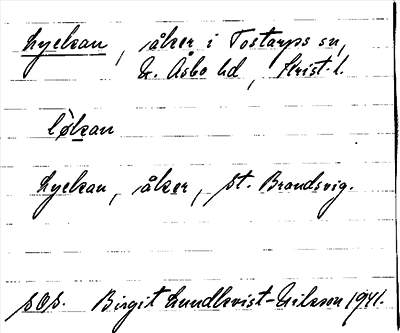 Lyckan, åker i Tostarps sn,
N. Åsbo hd, Krist. l.
løkan
Lyckan, åker, st. Brandsvig.
sOs. Birgit Lundkvist-Nilsson 1941.